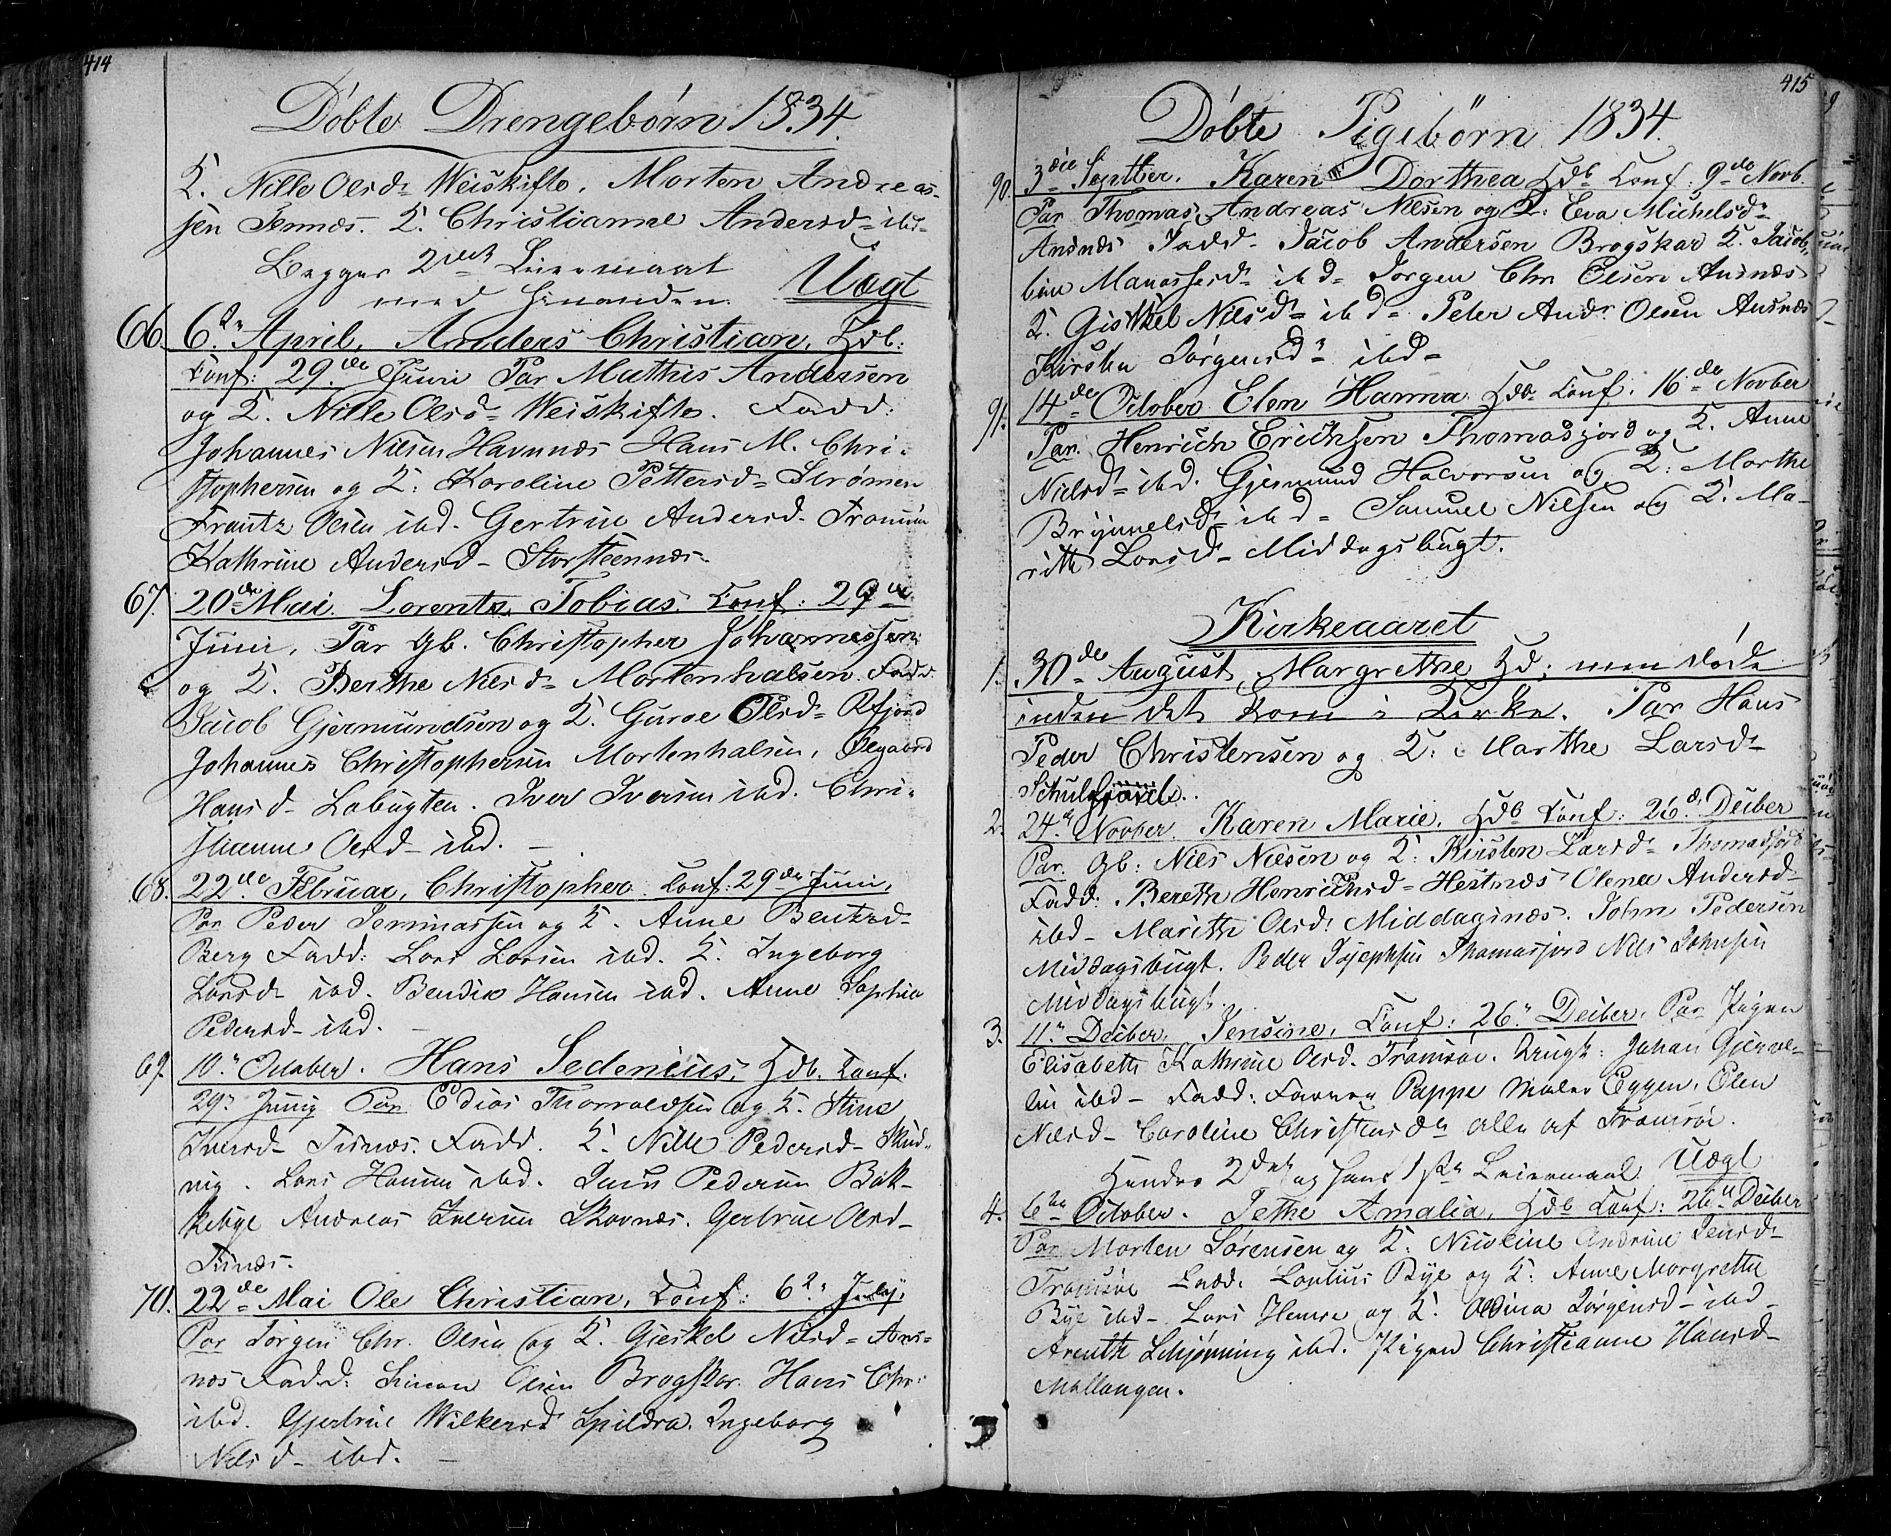 414
Døbte Drengebørn 1834.
K. Nille Olsd Weiskifte, Morten Andreas-
sen Tennæs. K. Christianne Andersd- ibd-
Begges 2det Leiermaal
med hinanden. Uægt
66. 6te April, Anders Christian, Hdb.
Conf: 29de Juni Par Mathis Andersen
og K. Nille Olsd- Weiskifte. Fadd:
Johannes Nilsen Havnnæs Hans M. Chri-
stophersen og K: Karoline Pettersd- Strømen
Frantz Olsen ibd. Gertrue Andersd-
Kathrine Andersd- Storsteennæs-
67. 20de Mai. Lorents Tobias. Conf: 29de
Juni, Par Gb. Christopher Johannessen
og K. Berthe Nilsd- Mortenhalsen. Fadd.
Jacob Gjermundsen og K. Guroe Olsd-
Johannes Christophersen Mortenhalsen,
Hansd- Lobugten. Iver Iversen ibd. Chri-
stianne Olsd- ibd. -
68. 22de Februar, Christopher. Conf: 29de Juni,
Par Peder Jemmassen og K. Anne Bentsd-
Berg Fadd: Lars Larsen ibd. K. Ingeborg
Larsd- ibd. Bendix Hansen ibd. Anne Sophia
Pedersd- ibd. -
69. 10. October. Hans Sedenius, Hdb. Conf.
29. Junij Par Edias Thorvaldsen og K. Stine
Iversd- Tisnæs. Fadd. K. Nille Pedersd- Skud-
nig. Lars Hansen ibd. Pedersen Bak-
kebye Andreas Iversen Skovnæs. Gertrue Olsd-
Tisnæs.
70. 22de Mai Ole Christian, Conf: 6te Julij,
Par Jørgen Chr. Olsen og K. Gieskel Nilsd- Ans-
næs Fadd: Simon Olsen Brogskar. Hans Chr:
ibd. Gjertrue Wilkersd Spildra. Ingeborg
Nilsd- ibd. -
415
Døbte Pigebørn 1834.
90. 3die Septber, Karen Dorthea Hdb Conf: 9de Novb.
Par Thomas Andreas Nilsen og K: Eva Michelsd-
Ansnæs Fadd- Jacob Andersen Brogskar K. Jacob-
bine Manassesd- ibd- Jørgen Chr Olsen Ansnæs
K. Giskel Nilsd- ibd- Peter Andr Olsen Ansnæs
Kirsten Jørgensd- ibd-
91. 14de October Elen Hanna Hdb. Conf. 16de Novber
Par. Henrich Erichsen Thomasjord og K. Anne
Nielsd- ibd. Gjermund Halvorsen og K: Marthe
Brynnelsd- ibd- Samuel Nilsen og K. Ma-
rith Larsd- Middagsbugt.
Kirkeaaret
1. 30de August, Margrethe Hd: men døde
inden det kom i Kirke. Par Hans
Peder Christensen og K: Marthe Larsd-
2. 24. Novber. Karen Marie, Hdb Conf: 26. Deiber
Par. Gb: Niels Nilsen og K: Kirsten Larsd- Thomasjord
Fadd: Bereth Henrichsd- Hestnæs Olena Andersd-
ibd- Marith Olsd: Middagsnæs. John Pedersen
Middagsbugt. Peder Josephsen Thomasjord Nils Johnsen
Middagsbugt.
3. 11. Deiber, Jensine, Conf: 26. Deiber, Par Pigen
Elisabeth Kathrine Olsd. Tromsøe. Brugt: Johan
ibd- Fadd: Farver Pappe Maler Eggen, Elen
Nilsd- Caroline Christensd- alle af Tromsøe.
Hendes 2det og hans 1ste Leiermaal Uægt
4. 6te October. Jethe Amalia, Hdb Conf: 26de Deiber
Par Morten Sørensen og K. Nicoline Andrine Jensd-
Tromsøe Fadd. Bye og K: Anne Margrethe
Bye ibd- Lars og K. Oldina Jørgensd- ibd-
Arenth Schjønning ibd. Pigen Christianne Hansd-
Mallangen.